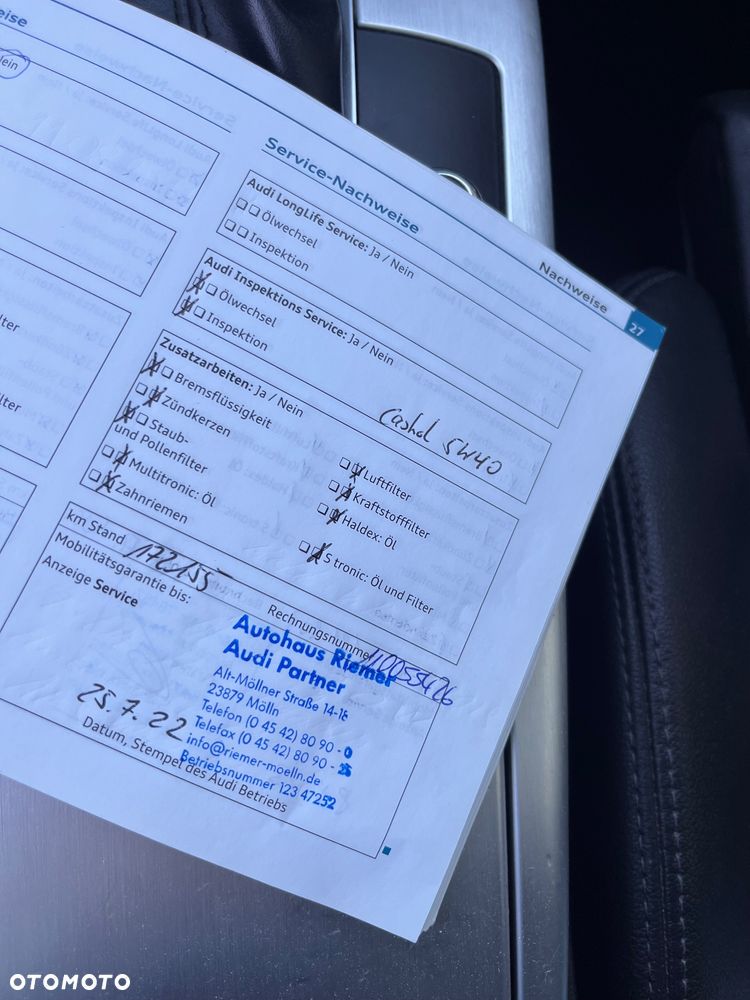 eise
lein
lter
lter
Service-Nachweise
Nachweise
27
Audi LongLife Service: Ja / Nein
Ölwechsel
Inspektion
Audi Inspektions Service: Ja / Nein
Ölwechsel
Inspektion
Castrol 5W40
Zusatzarbeiten: Ja / Nein
Bremsflüssigkeit
Zündkerzen
Staub-
und Pollenfilter
Multitronic: Öl
Zahnriemen
Luftfilter
Kraftstofffilter
Haldex: Öl
S tronic: Öl und Filter
km Stand 172155
Mobilitätsgarantie bis:
Anzeige Service
Rechnungsnummer
Autohaus Riemer
Audi Partner
Alt-Möllner Straße 14-18
23879 Mölln
Telefon (0 45 42) 80 90 - 0
Telefax (0 45 42) 80 90 - 25
info@riemer-moelln.de
Betriebsnummer 123 47252
25.7.22
Datum, Stempel des Audi Betriebs
OTOMOTO